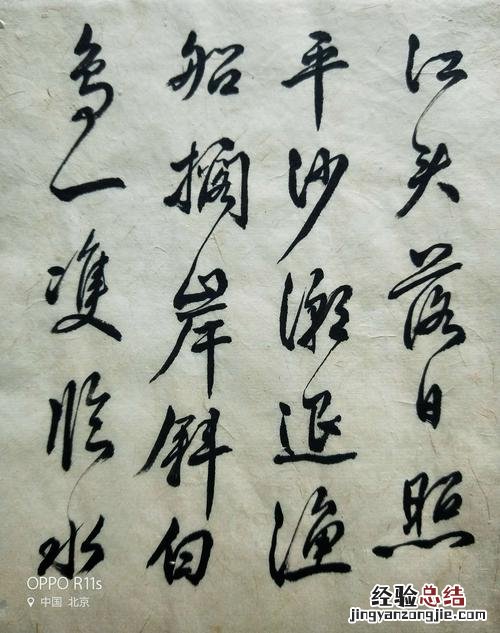 江头落日照
平沙潮退渔
船搁岸斜白
鸟一双临水
OPPO R11s
中国 北京
经验总结
jingyanzongjie.com